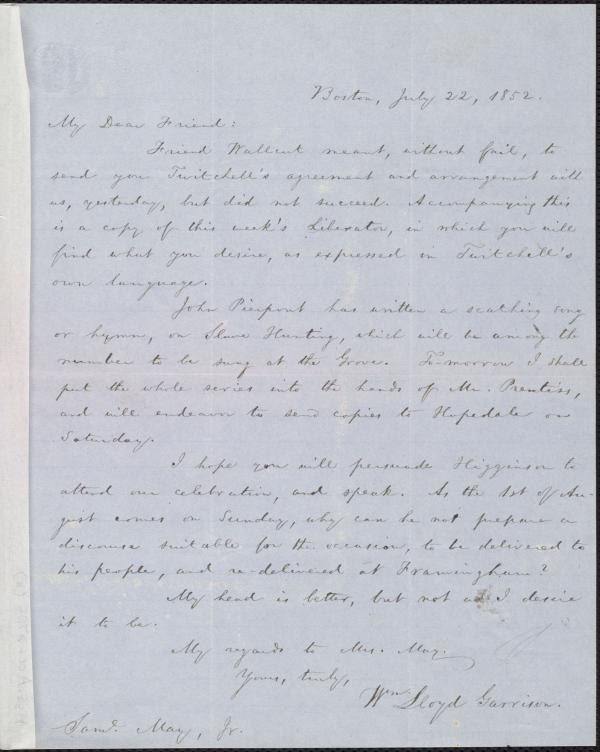 Boston, July 22, 1852.
My Dear Friend:
Friend Wallcut meant, without fail, to
send you Twitchell's agreement and arrangement with
us, yesterday, but did not succeed. Accompanying this
is a copy of this week's Liberator, in which you will
find what you desire, as expressed in Twitchell's
own language.
John Pierpont has written a scathing song
or hymn, on Slave Hunting, which will be among the
number to be sung at the Grove. To-morrow I shall
put the whole series into the hands of Mr. Prentiss,
and will endeavor to send copies to Hopedale on
Saturday.
I hope you will persuade Higginson to
attend our celebration, and speak. As the 1st of Au-
gust comes on Sunday, why can he not prepare a
discourse suitable for the occasion, to be delivered to
his people, and re-delivered at Framingham?
My head is better, but not as I desire
it to be.
My regards to Mrs. May.
Yours, truly,
Wm. Lloyd Garrison.
Saml. May, Jr.